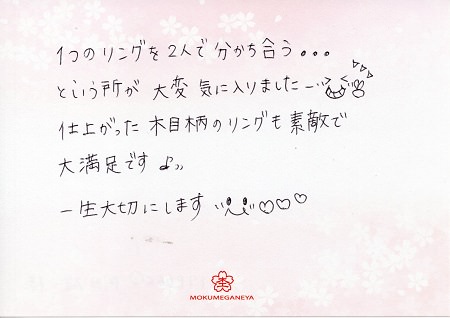 1つのリングを2人で分かち合う...
という所が 大変 気に入りました
仕上がった 木目柄のリングも 素敵で
大満足です♪
一生大切にします ♡♡♡
MOKUMEGANEYA